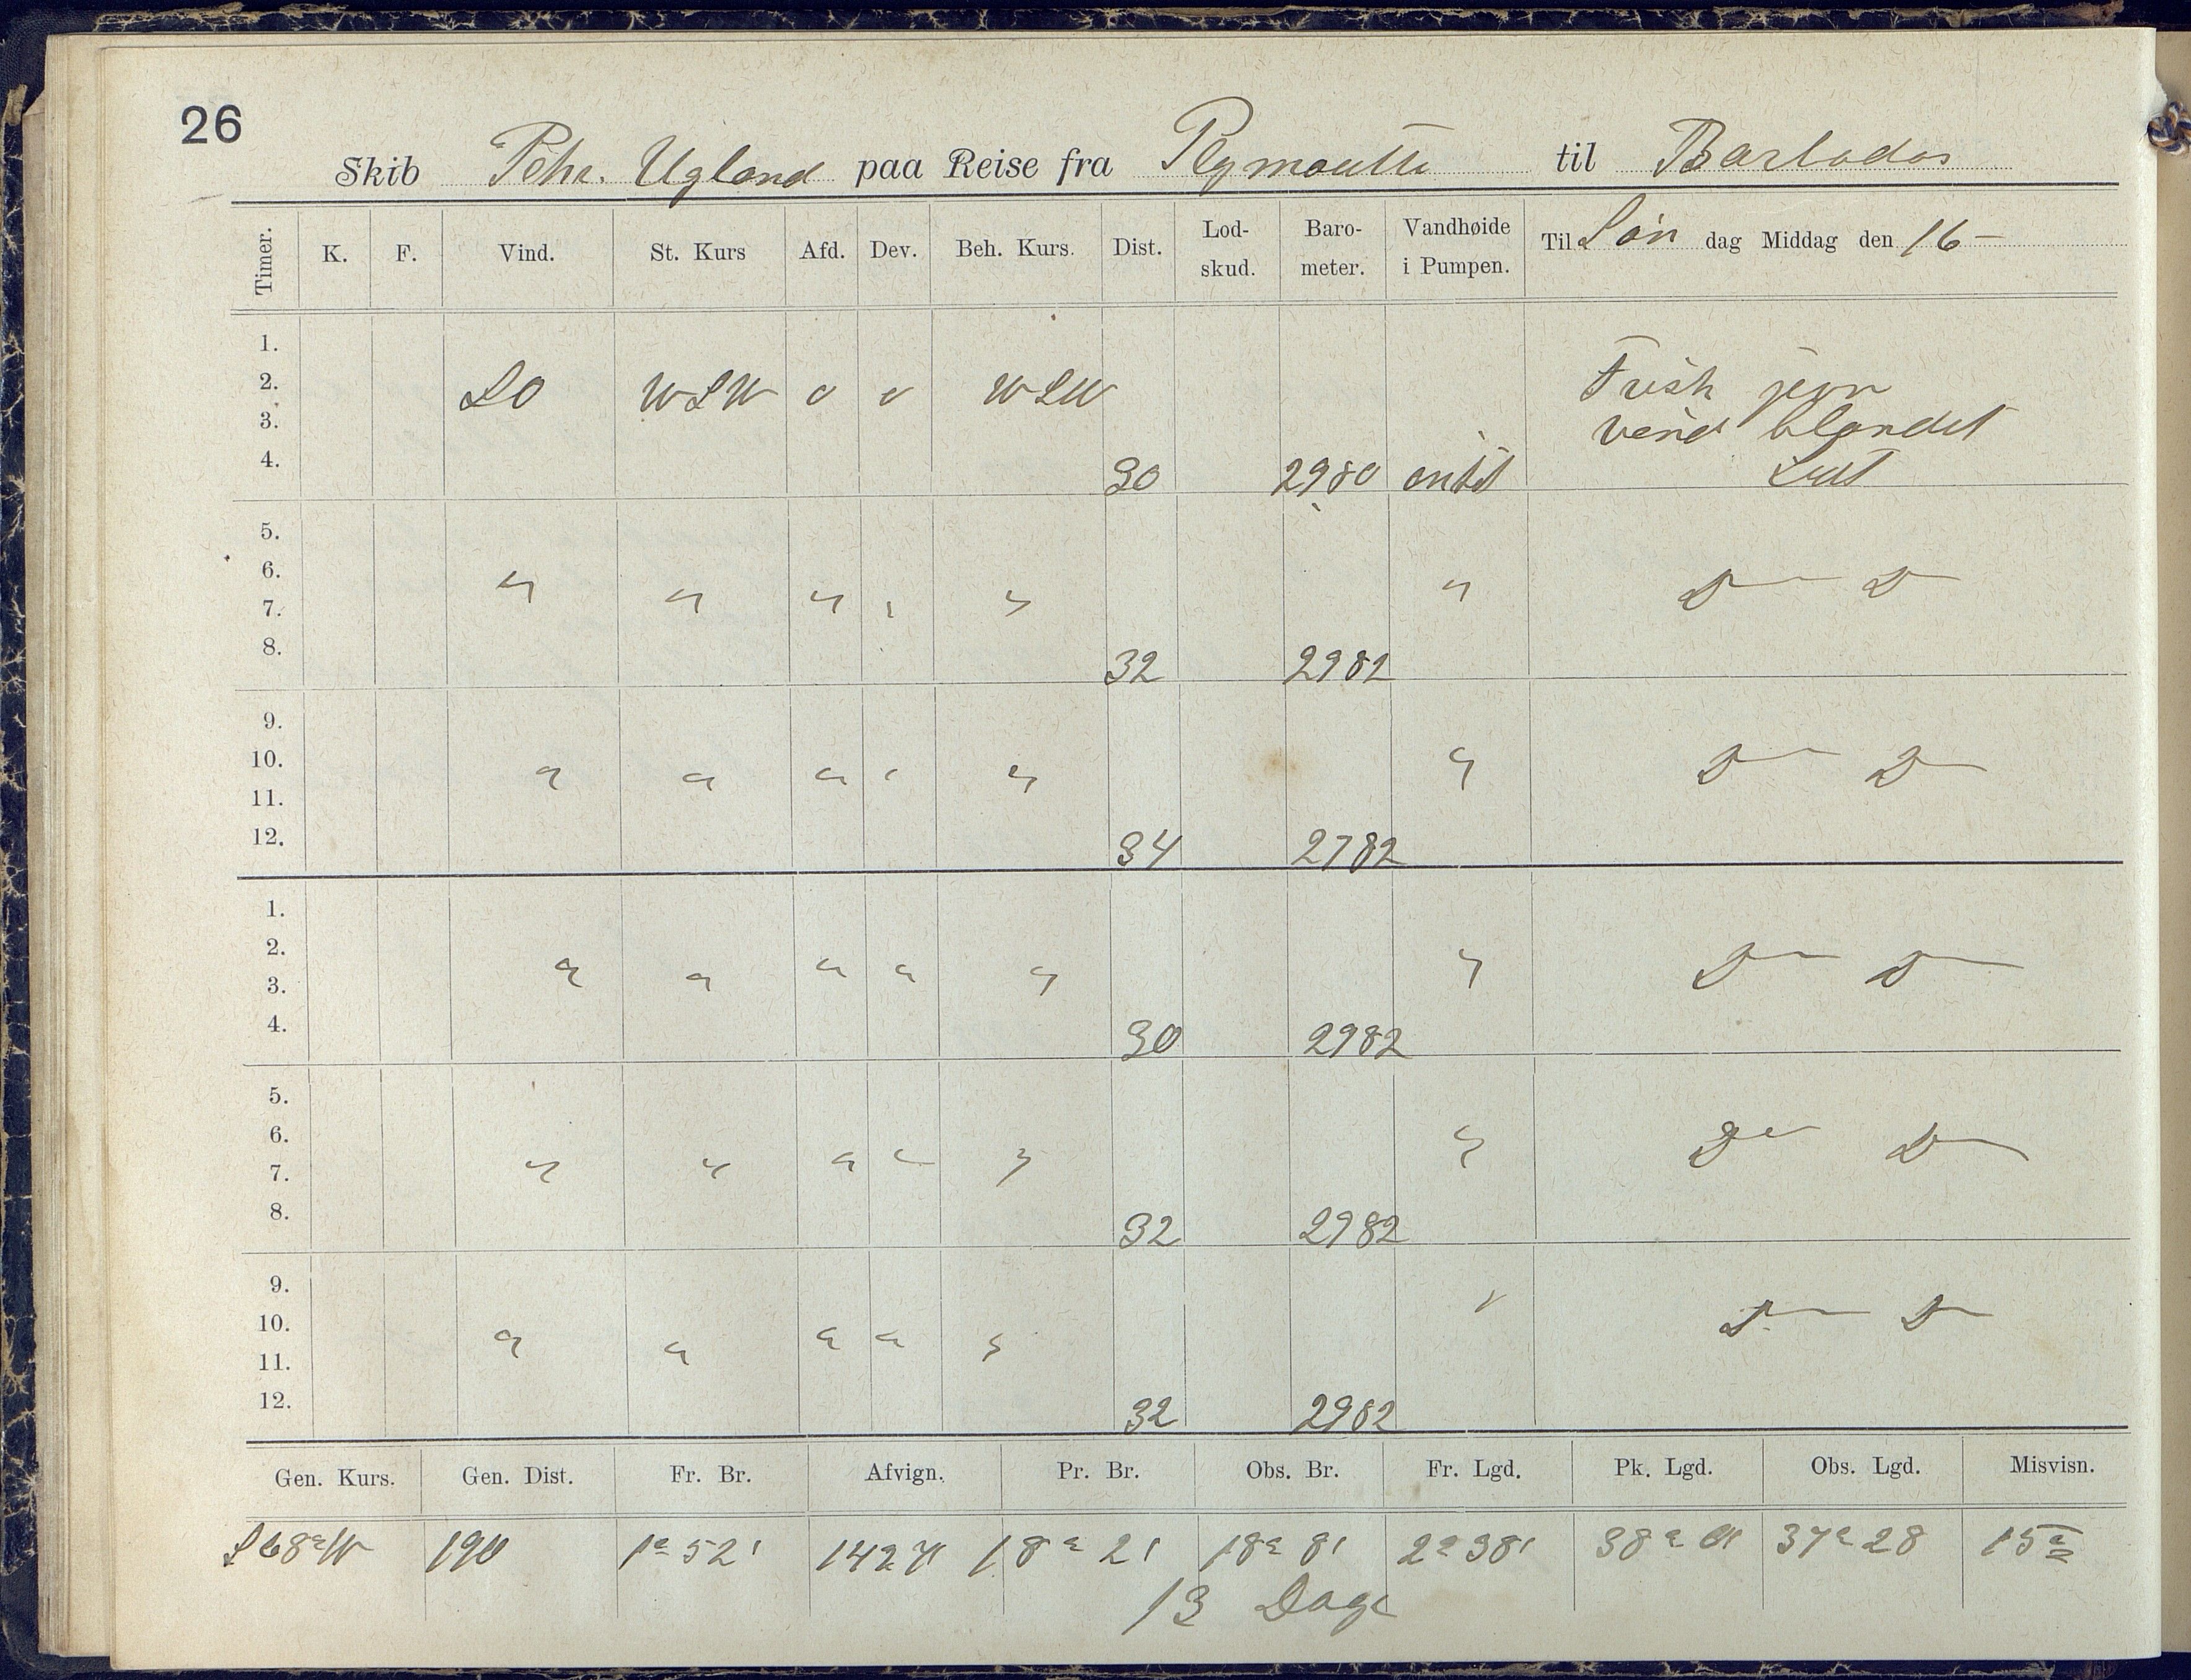 26
Skib Pehr. Ugland paa Reise fra Plymoutte til Barbados
Timer. K. F. Vind. St. Kurs Afd. Dev. Beh. Kurs. Dist. Lod-skud. Baro-meter. Vandhøide i Pumpen. Til Søn dag Middag den 16 -
1.
2. SO WSW 0 0 WSW Frisk jevn
3. vind blandet
4. 30 2980 entet Luft
5.
6. " " " " " " D D
7.
8. 32 2982
9.
10. " " " " " " D D
11.
12. 34 2782
1.
2. " " " " " " D D
3.
4. 30 2982
5.
6. " " " " " " D D
7.
8. 32 2982
9.
10. " " " " " " D D
11.
12. 32 2982
Gen. Kurs. Gen. Dist. Fr. Br. Afvign. Pr. Br. Obs. Br. Fr. Lgd. Pk. Lgd. Obs. Lgd. Misvisn.
S 68° W 190 1° 52' 18° 2' 18° 8' 2° 38' 37° 28 15°
13 Dage